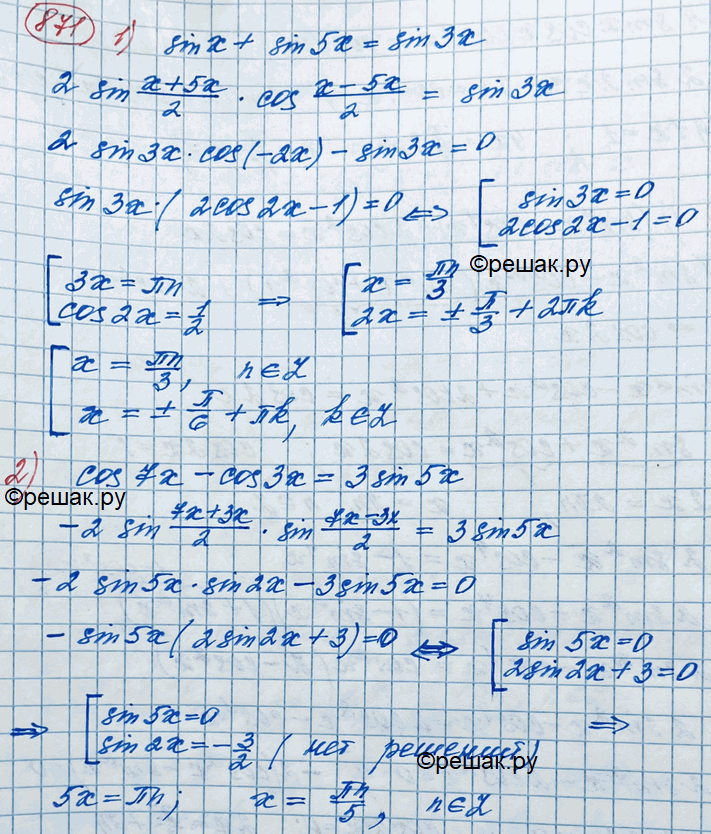 871 1) sin x + sin 5x = sin 3x
2 sin (x+5x)/2 · cos (x−5x)/2 = sin 3x
2 sin 3x · cos(−2x) − sin 3x = 0
sin 3x · ( 2cos 2x − 1) = 0 <=> [ sin 3x = 0
2cos 2x − 1 = 0
[ 3x = πn
cos 2x = 1/2
=> [ x = πn/3
2x = ± π/3 + 2πk
©решак.ру
[ x = πn/3, n ∈ Z
x = ± π/6 + πk, k ∈ Z
2) cos 7x − cos 3x = 3 sin 5x
©решак.ру
−2 sin (7x+3x)/2 · sin (7x−3x)/2 = 3 sin 5x
−2 sin 5x · sin 2x − 3 sin 5x = 0
− sin 5x ( 2 sin 2x + 3) = 0 <=> [ sin 5x = 0
2 sin 2x + 3 = 0
=> [ sin 5x = 0
sin 2x = − 3/2 ( нет решений) =>
©решак.ру
5x = πn; x = πn/5, n ∈ Z